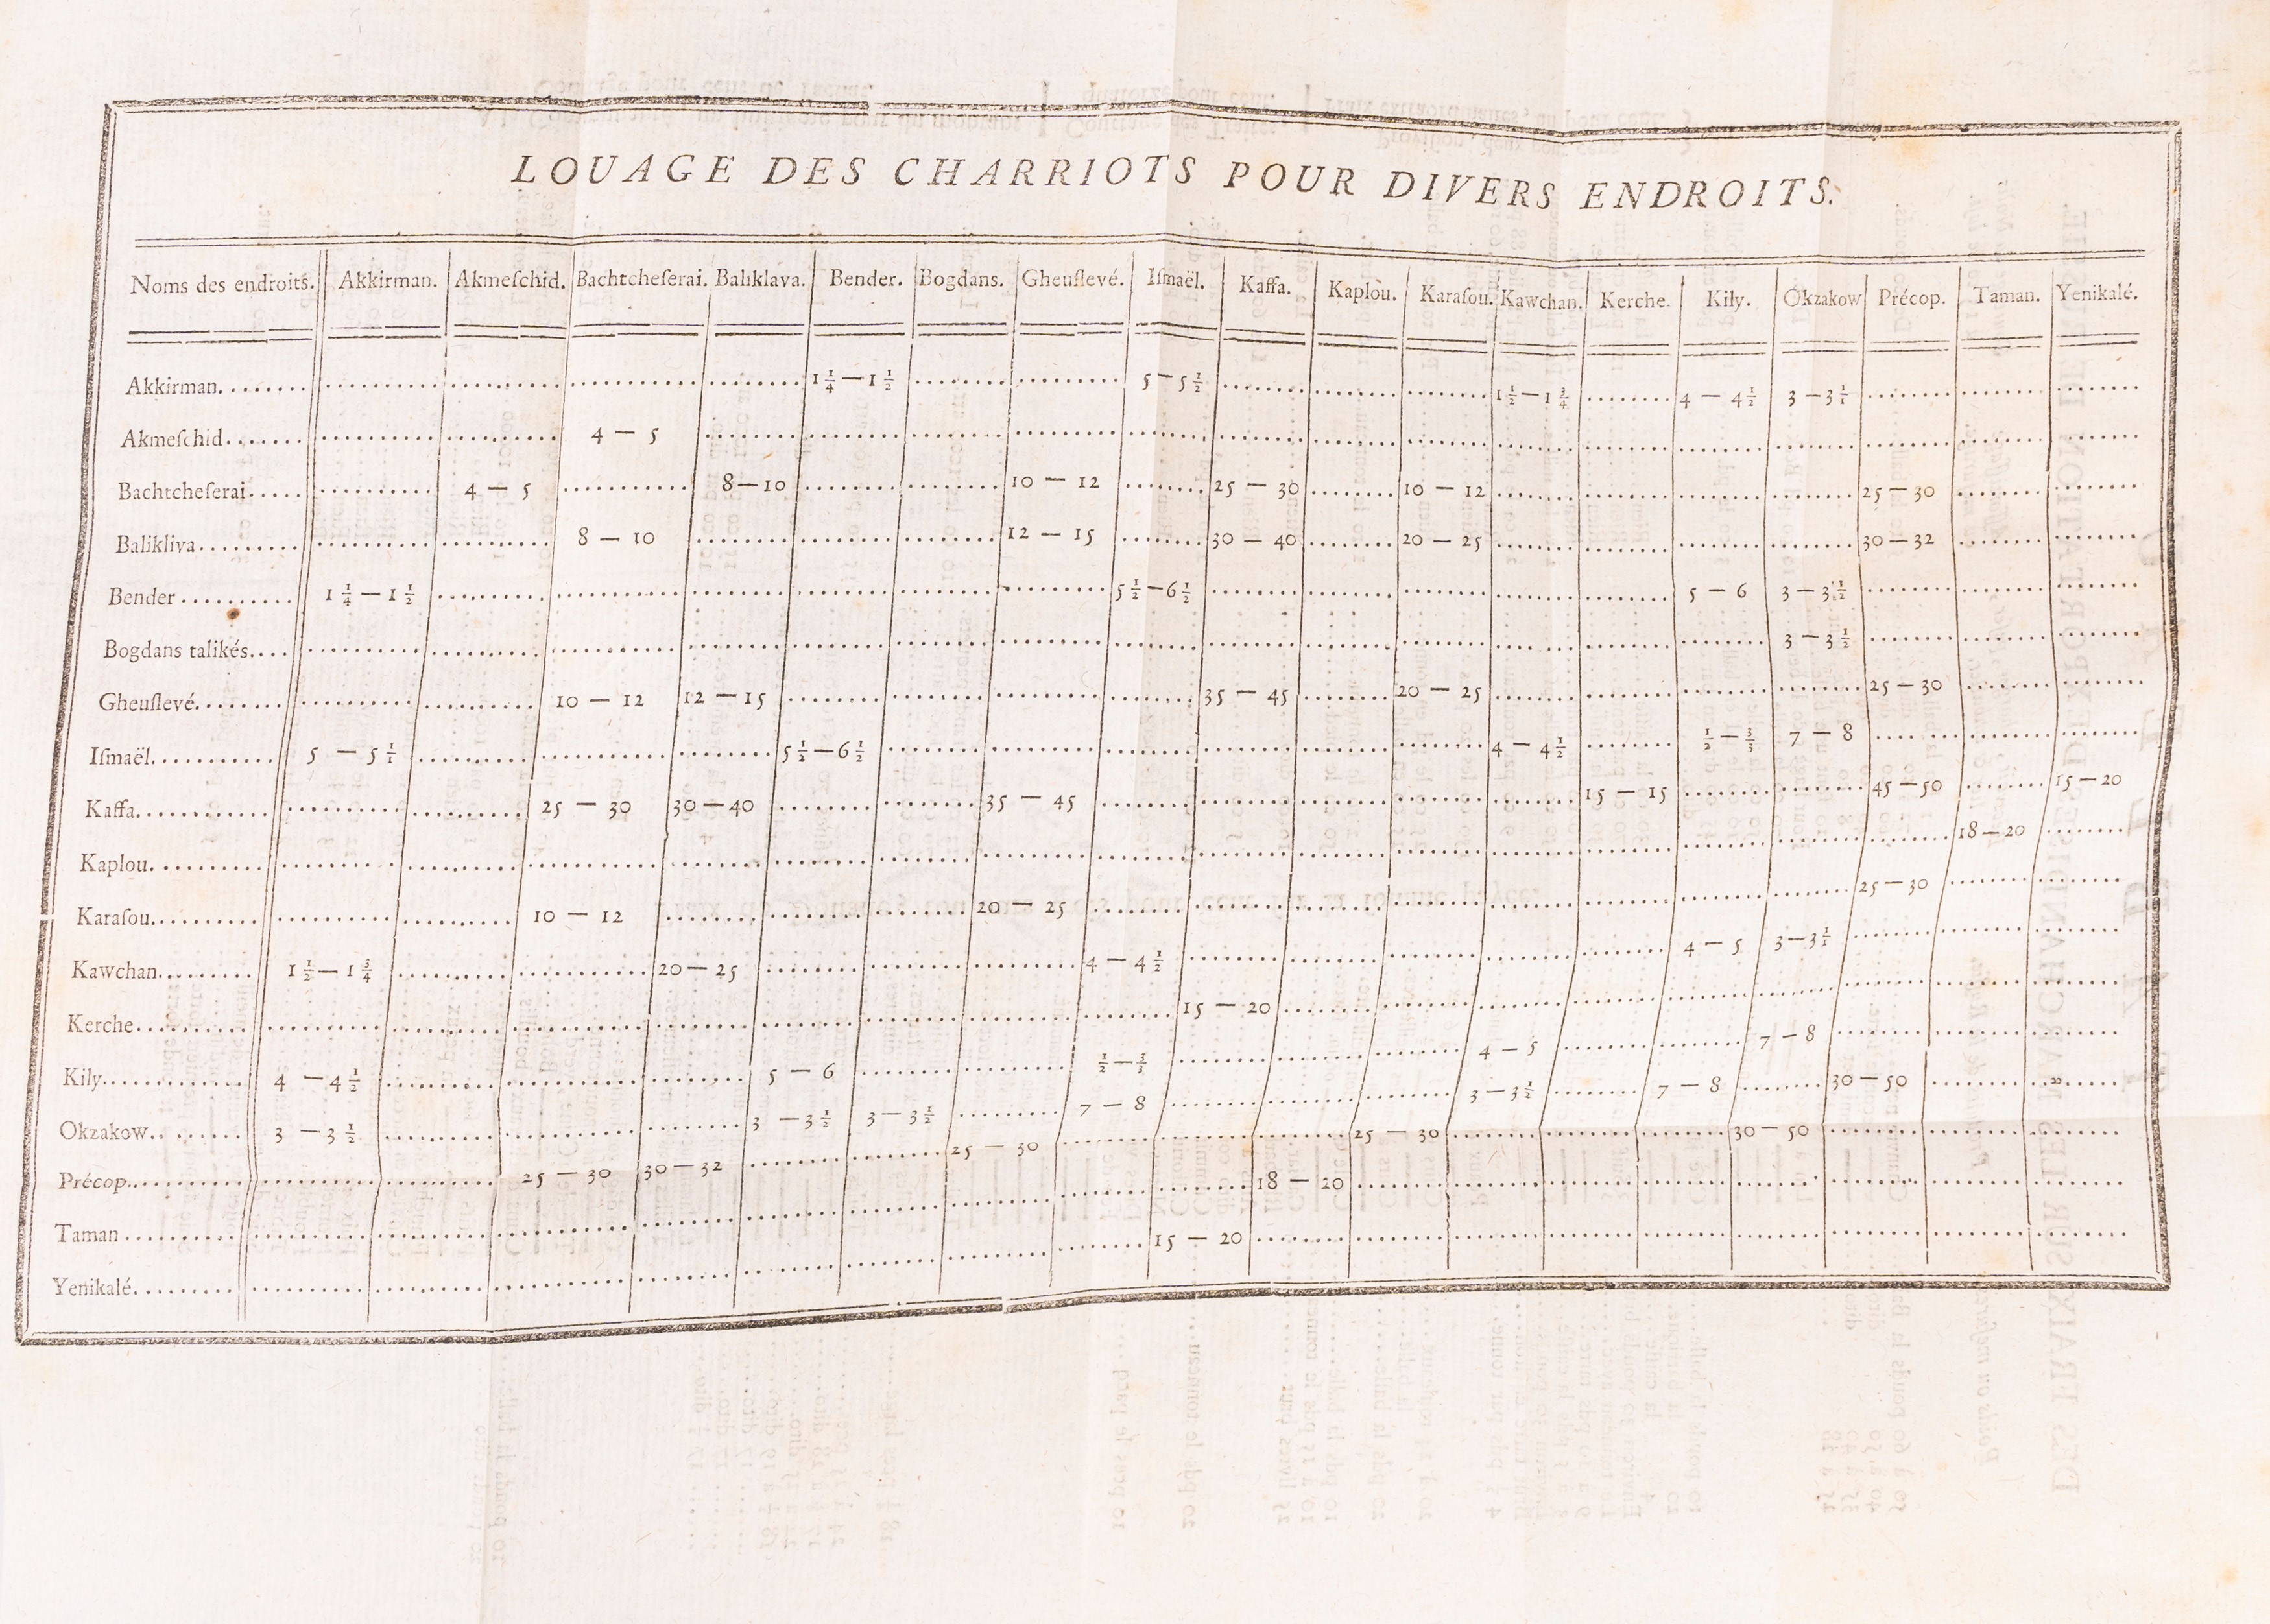 LOUAGE DES CHARRIOTS POUR DIVERS ENDROITS.
Noms des endroits. Akkirman. Akmeſchid. Bachtcheſerai. Baliklava. Bender. Bogdans. Gheuſlevé. Iſmaël. Kaffa. Kaplou. Karaſou. Kawchan. Kerche. Kily. Okzakow Précop. Taman. Yenikalé.
Akkirman. 1 1/4 — 1 1/2 5 — 5 1/2 1 1/2 — 1 3/4 4 — 4 1/2 3 — 3 1/1
Akmeſchid 4 — 5
Bachtcheſerai 4 — 5 8 — 10 10 — 12 25 — 30 10 — 12 25 — 30
Balikliva 8 — 10 12 — 15 30 — 40 20 — 25 30 — 32
Bender 1 1/4 — 1 1/2 5 1/2 — 6 1/2 5 — 6 3 — 3 1/2
Bogdans talikés. 3 — 3 1/2
Gheuſlevé. 10 — 12 12 — 15 35 — 45 20 — 25 25 — 30
Iſmaël. 5 — 5 1/1 5 1/2 — 6 1/2 4 — 4 1/2 1/2 — 3/3 7 — 8
Kaffa. 25 — 30 30 — 40 35 — 45 15 — 15 45 — 50 15 — 20
Kaplou. 18 — 20
Karaſou. 10 — 12 20 — 25 25 — 30
Kawchan. 1 1/2 — 1 3/4 20 — 25 4 — 4 1/2 4 — 5 3 — 3 1/1
Kerche. 15 — 20
Kily. 4 — 4 1/2 5 — 6 1/2 — 3/3 4 — 5 7 — 8
Okzakow. 3 — 3 1/2 3 — 3 1/2 3 — 3 1/2 7 — 8 3 — 3 1/2 7 — 8 30 — 50
Précop. 25 — 30 30 — 32 25 — 30 25 — 30 30 — 50
Taman 18 — 20
Yenikalé. 15 — 20